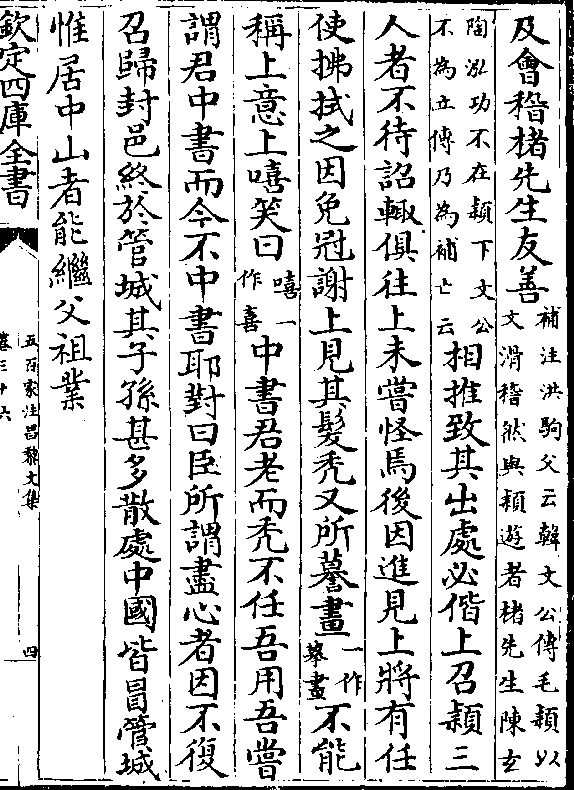 及會稽楮先生友善補注洪駒父云韓文公傳毛穎以文滑稽然與穎遊者楮先生陳玄
陶泓功不在穎下文公不為立傳乃為補亡云相推致其出處必偕上召穎三
人者不待詔輙俱往上未嘗怪焉後因進見上將有任
使拂拭之因免冠謝上見其髮禿又所謩畫一作摹畫不能
稱上意上嘻笑曰嘻一作喜中書君老而禿不任吾用吾嘗
謂君中書而今不中書耶對曰臣所謂盡心者因不復
召歸封邑終於管城其子孫甚多散處中國皆冒管城
惟居中山者能繼父祖業
欽定四庫全書
五百家注昌黎文集
卷三十六
四